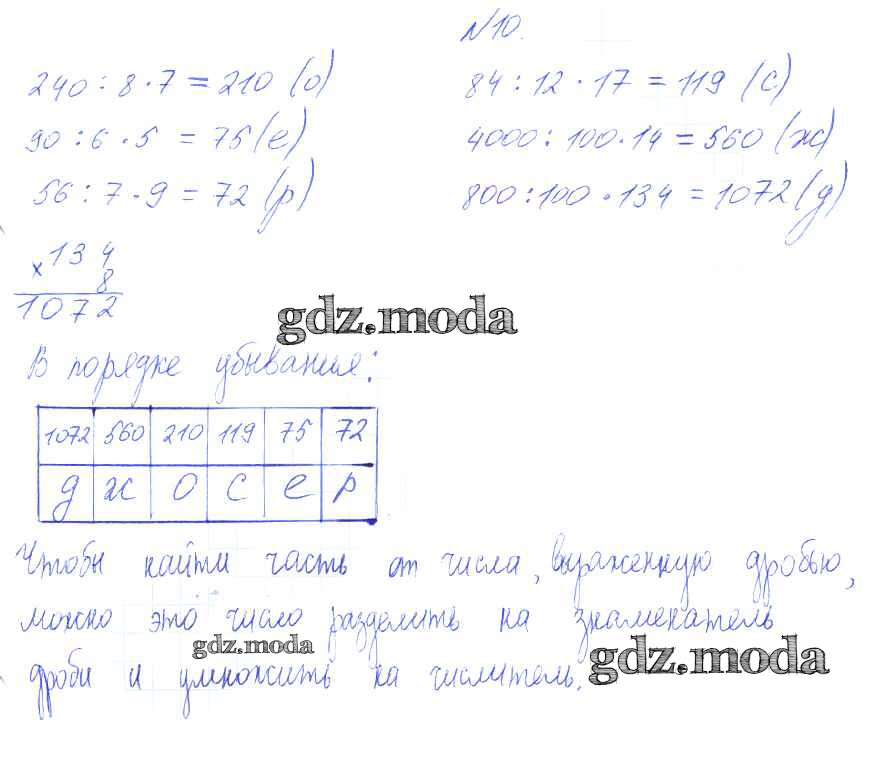 №10.
240 : 8 · 7 = 210 (о)
90 : 6 · 5 = 75 (е)
56 : 7 · 9 = 72 (р)
84 : 12 · 17 = 119 (с)
4000 : 100 · 14 = 560 (ж)
800 : 100 · 134 = 1072 (д)
× 134
8
1072
gdz.moda
В порядке убывания:
1072 560 210 119 75 72
д ж о с е р
Чтобы найти часть от числа, выраженную дробью,
можно это число разделить на знаменатель
gdz.moda
gdz.moda
дроби и умножить на числитель.